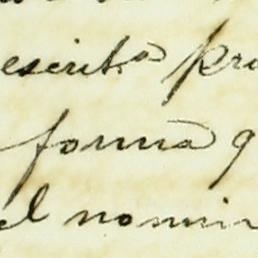 escrita pr
forma q
el nomin